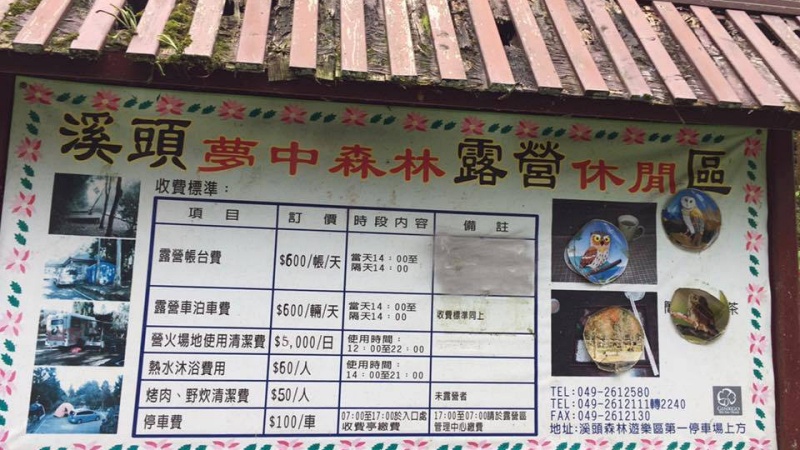 溪頭夢中森林露營休閒區
收費標準：
項目 訂價 時段內容 備註
露營帳台費 $600/帳/天 當天14：00至
隔天14：00
露營車泊車費 $600/輛/天 當天14：00至
隔天14：00 收費標準同上
營火場地使用清潔費 $5,000/日 使用時間：
12：00至22：00
熱水沐浴費用 $60/人 使用時間：
14：00至21：00
烤肉、野炊清潔費 $50/人 未露營者
停車費 $100/車 07:00至17:00於入口處
收費亭繳費 17:00至07:00請於露營區
管理中心繳費
茶
TEL:049-2612580
TEL:049-2612111轉2240
FAX:049-2612130
地址:溪頭森林遊樂區第一停車場上方